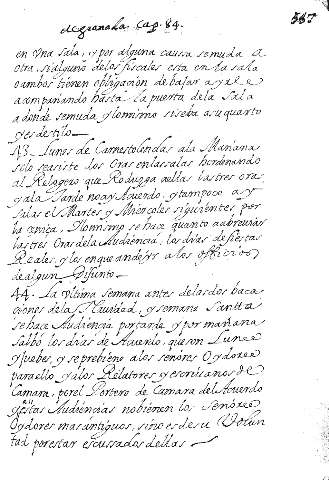 de granada Cap. 84.
587
en Una sala, y por alguna causa se muda a
otra, si alguno de los fiscales esta en la sala
o ambos tienen obligacion de bajar a y de
acompañando hasta la puerta de la Sala
a donde se muda, y lo mismo si se ba a su quarto
y es de stilo
43. Lunes de Carnestolendas a la Mañana
solo se asiste dos Oras en las salas hordenando
al Reloxero que Reduzga a ellas las tres oras
y a la Tarde no ay Acuerdo, y tampoco ay
Salas el Martes y Miercoles siguientes, por
la zeniza, Y lo mismo se hace quanto a abreuiar
las tres Oras de la Audiencia, los dias de fiestas
Reales, y los en que an de yr a los officios
de algun Difunto
44. La Vltima semana antes de las dos baca
ciones de la Nauidad, y semana Santta
se hace Audiencia por tarde, y por mañana
salbo los dias de Acuerdo, que son Lunes
y Juebes, y se prebiene a los señores Oydores
para ello y a los Relatores y escriuanos de
Camara, por el Portero de Camara del Acuerdo
y a estas Audiencias no bienen los Señores
Oydores mas antiguos, sino es de su Volun
tad por estar escussados de llas